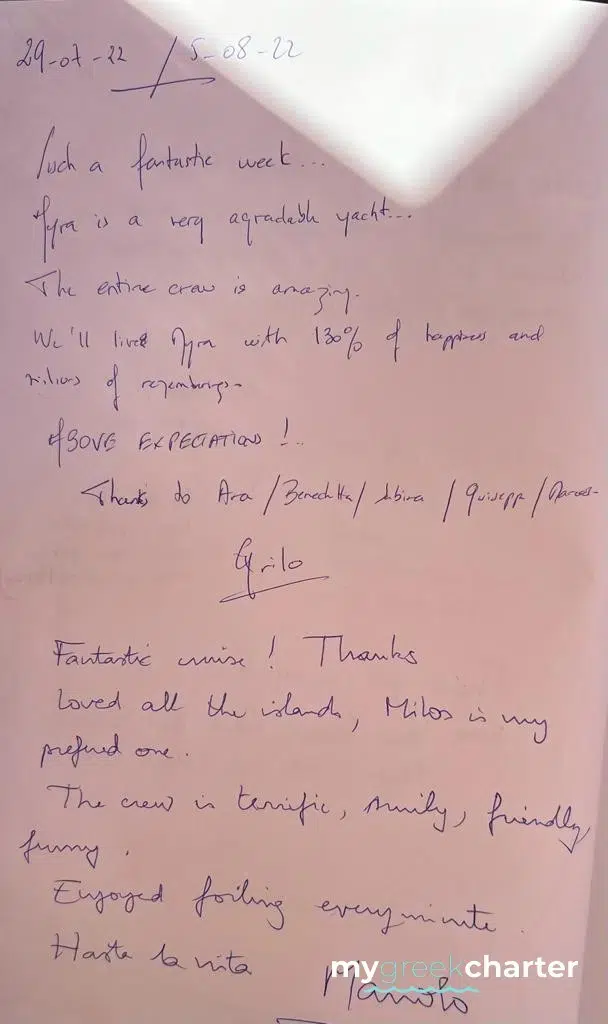 29-07-22 / 5-08-22
Such a fantastic week...
is a very agradable yacht...
The entire crew is amazing.
We'll live with 130% of happiness and
of
ABOVE EXPECTATIONS !..
Thanks do Ana / Benedetta / / /
Fantastic cruise ! Thanks
Loved all the islands, Milos is my
prefured one.
The crew is terrific, smily, friendly,
funny.
Enjoyed foiling every minute.
Hasta la vista
Manolo
mygreekcharter